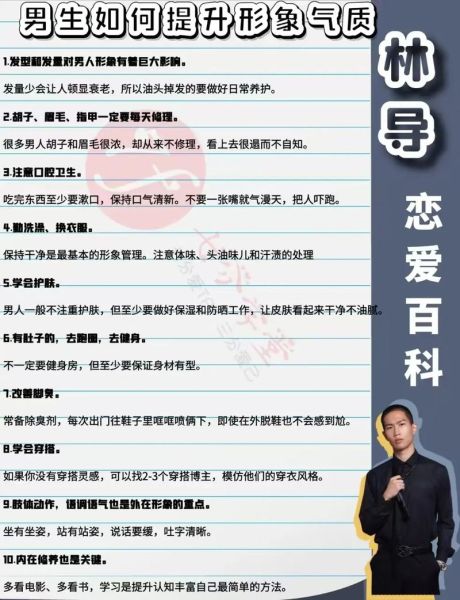 男生如何提升形象气质
林导
恋爱百科
1.发型和发量对男人形象有着巨大影响。
发量少会让人顿显衰老，所以油头掉发的要做好日常养护。
2.胡子、眉毛、指甲一定要每天修理。
很多男人胡子和眉毛很浓，却从来不修理，看上去很邋而不自知。
3.注意口腔卫生。
吃完东西至少要漱口，保持口气清新。不要一张嘴就气漫天，把人吓跑。
4.勤洗澡、换衣服。
保持干净是最基本的形象管理。注意体味、头油味儿和汗渍的处理
5.学会护肤。
男人一般不注重护肤，但至少要做好保湿和防晒工作，让皮肤看起来干净不油腻。
6.有肚子的，去跑圈，去健身。
不一定要健身房，但至少要保证身材有型。
7.改善脚臭。
常备除臭剂，每次出门往鞋子里哐哐喷俩下，即使在外脱鞋也不会感到尬。
8.学会穿搭。
如果你没有穿搭灵感，可以找2-3个穿搭博主，模仿他们的穿衣风格。
9.肢体动作，语调语气也是外在形象的重点。
坐有坐姿，站有站姿，说话要缓，吐字清晰。
10.内在修养也是关键。
多看电影、多看书，学习是提升认知丰富自己最简单的方法。
七分学堂